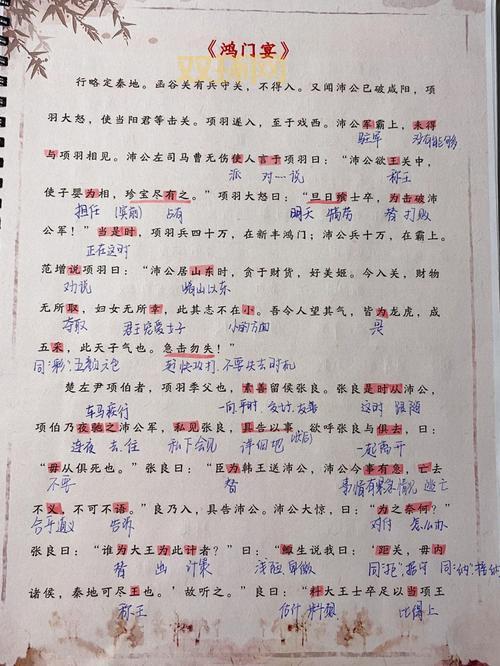 《鸿门宴》
行略定秦地。函谷关有兵守关，不得入。又闻沛公已破咸阳，项
羽大怒，使当阳君等击关。项羽遂入，至于戏西。沛公军霸上，未得
驻军 没有能够
与项羽相见。沛公左司马曹无伤使人言于项羽曰：“沛公欲王关中，
派 对…说 称王
使子婴为相，珍宝尽有之。”项羽大怒曰：“旦日飨士卒，为击破沛
担任 占有 明天 犒劳 替 打败
公军！”当是时，项羽兵四十万，在新丰鸿门；沛公兵十万，在霸上。
正在这时
范增说项羽曰：“沛公居山东时，贪于财货，好美姬。今入关，财物
劝说 崤山以东
无所取，妇女无所幸，此其志不在小。吾令人望其气，皆为龙虎，成
夺取 君王宠爱女子 小的方面 是
五采，此天子气也。急击勿失！”
同“彩”五颜六色 赶快攻打，不要失去时机
楚左尹项伯者，项羽季父也，素善留侯张良。张良是时从沛公，
一向 平时，交好，友善 这时 跟随
项伯乃夜驰之沛公军，私见张良，具告以事，欲呼张良与俱去，曰：
连夜 去、往 私下会见 详细地 一起离开
“毋从俱死也。”张良曰：“臣为韩王送沛公，沛公今事有急，亡去
不要 替 事情有紧急情况 逃亡
不义，不可不语。”良乃入，具告沛公。沛公大惊，曰：“为之奈何？”
合乎道义 告诉 对付 怎么办
张良曰：“谁为大王为此计者？”曰：“鲰生说我曰：‘距关，毋内
替 出 计策 浅陋卑微 同“拒”
诸侯，秦地可尽王也。’故听之。”良曰：“料大王士卒足以当项王
称王 估计 比得上